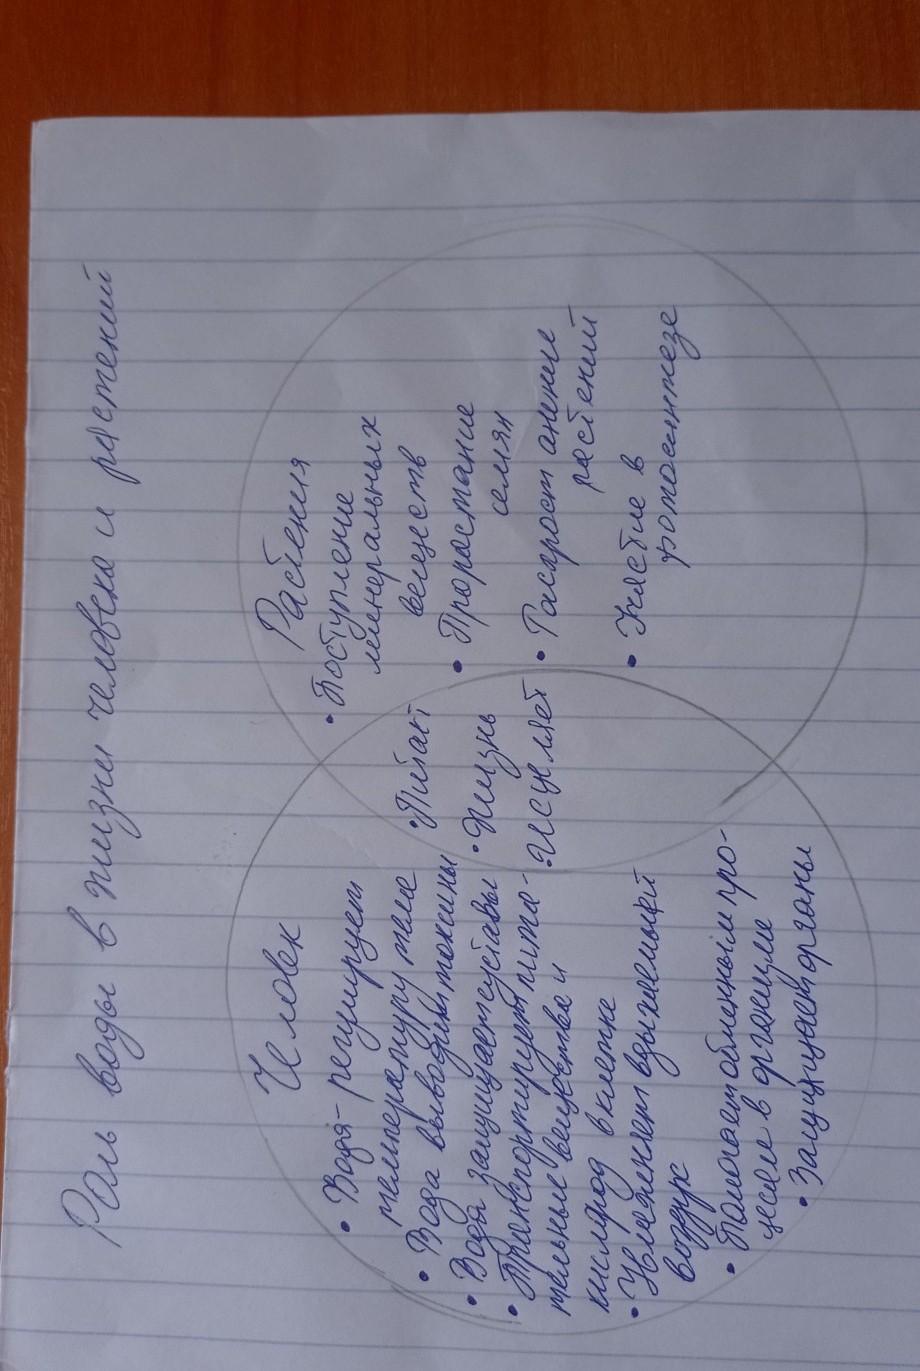 Роль воды в жизни человека и растений
Человек
• Вода - регулирует
температуру тела
• Вода выводит токсины
• Вода защищает суставы
• Транспортирует пита-
тельные вещества и
кислород в клетки
• Увлажняет вдыхаемый
воздух
• Помогает обменным про-
цессам в организме
• Защищает органы
• Питает
• Жизнь
• Исцеляет
Растения
• Поступление
минеральных
веществ
• Прорастание
семян
• Распространение
растений
• Участие в
фотосинтезе